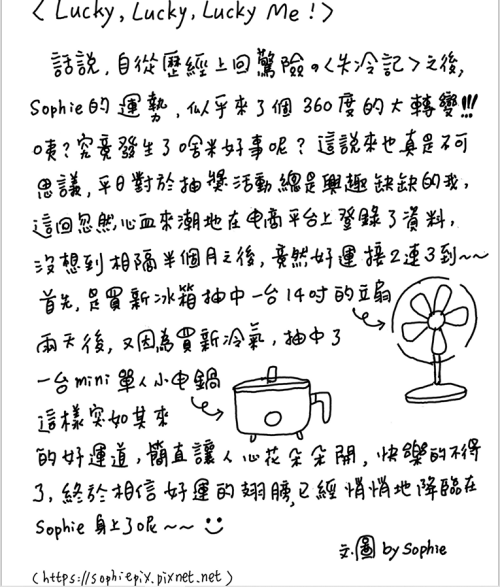 < Lucky, Lucky, Lucky Me ! >
話說, 自從歷經上回驚險の<失冷記>之後,
Sophie的運勢, 似乎來了個360度的大轉變!!!
咦? 究竟發生了啥米好事呢? 這說來也真是不可
思議, 平日對於抽獎活動總是興趣缺缺的我,
這回忽然心血來潮地在電商平台上登錄了資料,
沒想到相隔半個月之後, 竟然好運接2連3到~~
首先, 是買新冰箱抽中一台14吋的立扇
兩天後, 又因為買新冷氣, 抽中了
一台mini單人小電鍋
這樣突如其來
的好運道, 簡直讓人心花朵朵開, 快樂的不得
了, 終於相信好運的翅膀, 已經悄悄地降臨在
Sophie身上了呢~~
文.圖 by Sophie
(https://sophiepix.pixnet.net)